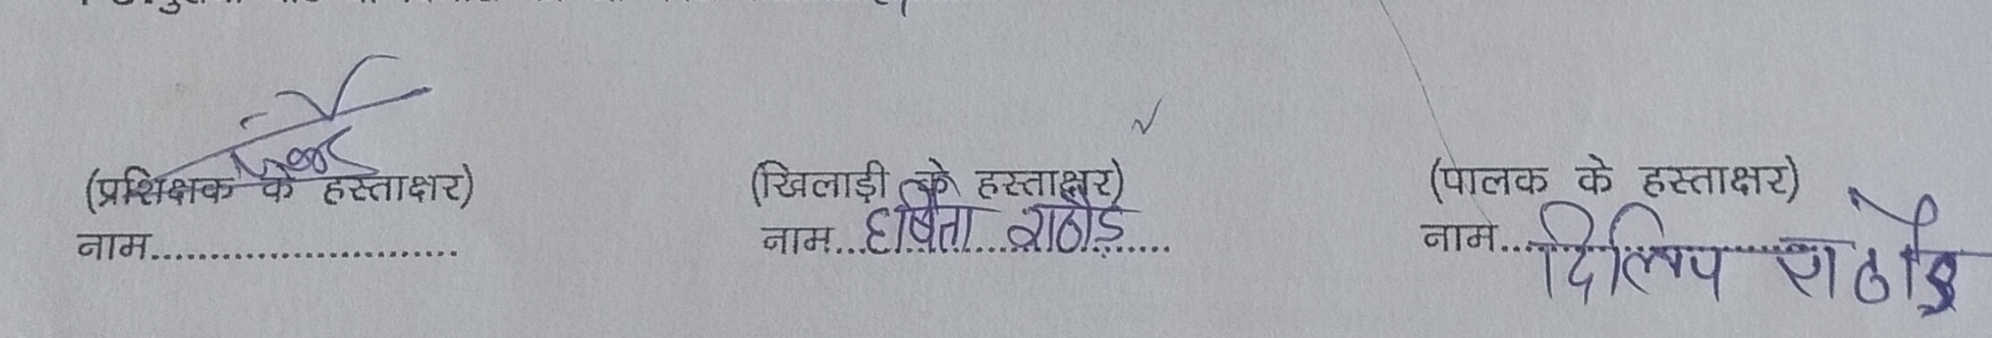 (प्रशिक्षक के हस्ताक्षर) (खिलाड़ी के हस्ताक्षर) (पालक के हस्ताक्षर)
नाम.......................... नाम...हर्षिता राठौड़...... नाम...दिलिप राठौड़